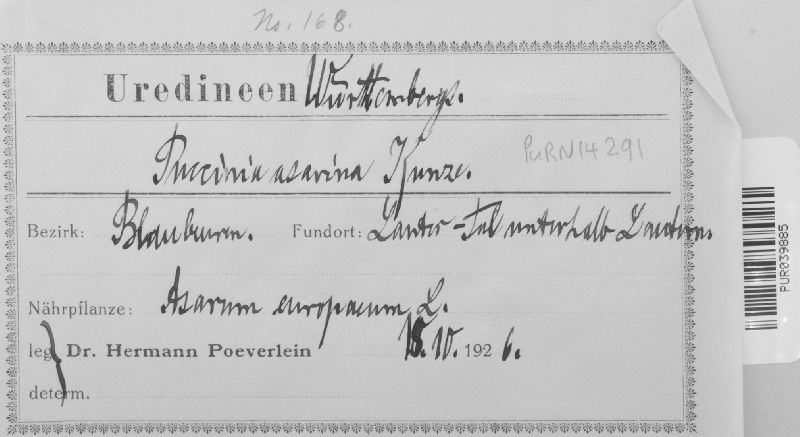 No. 168.
Uredineen Württembergs.
Puccinia asarina Kunze.
PURN14291
Bezirk: Blaubeuren. Fundort: Lauter-Tal unterhalb Lautern.
Nährpflanze: Asarum europaeum L.
leg. Dr. Hermann Poeverlein 18. 10. 1926.
determ.
PUR039885